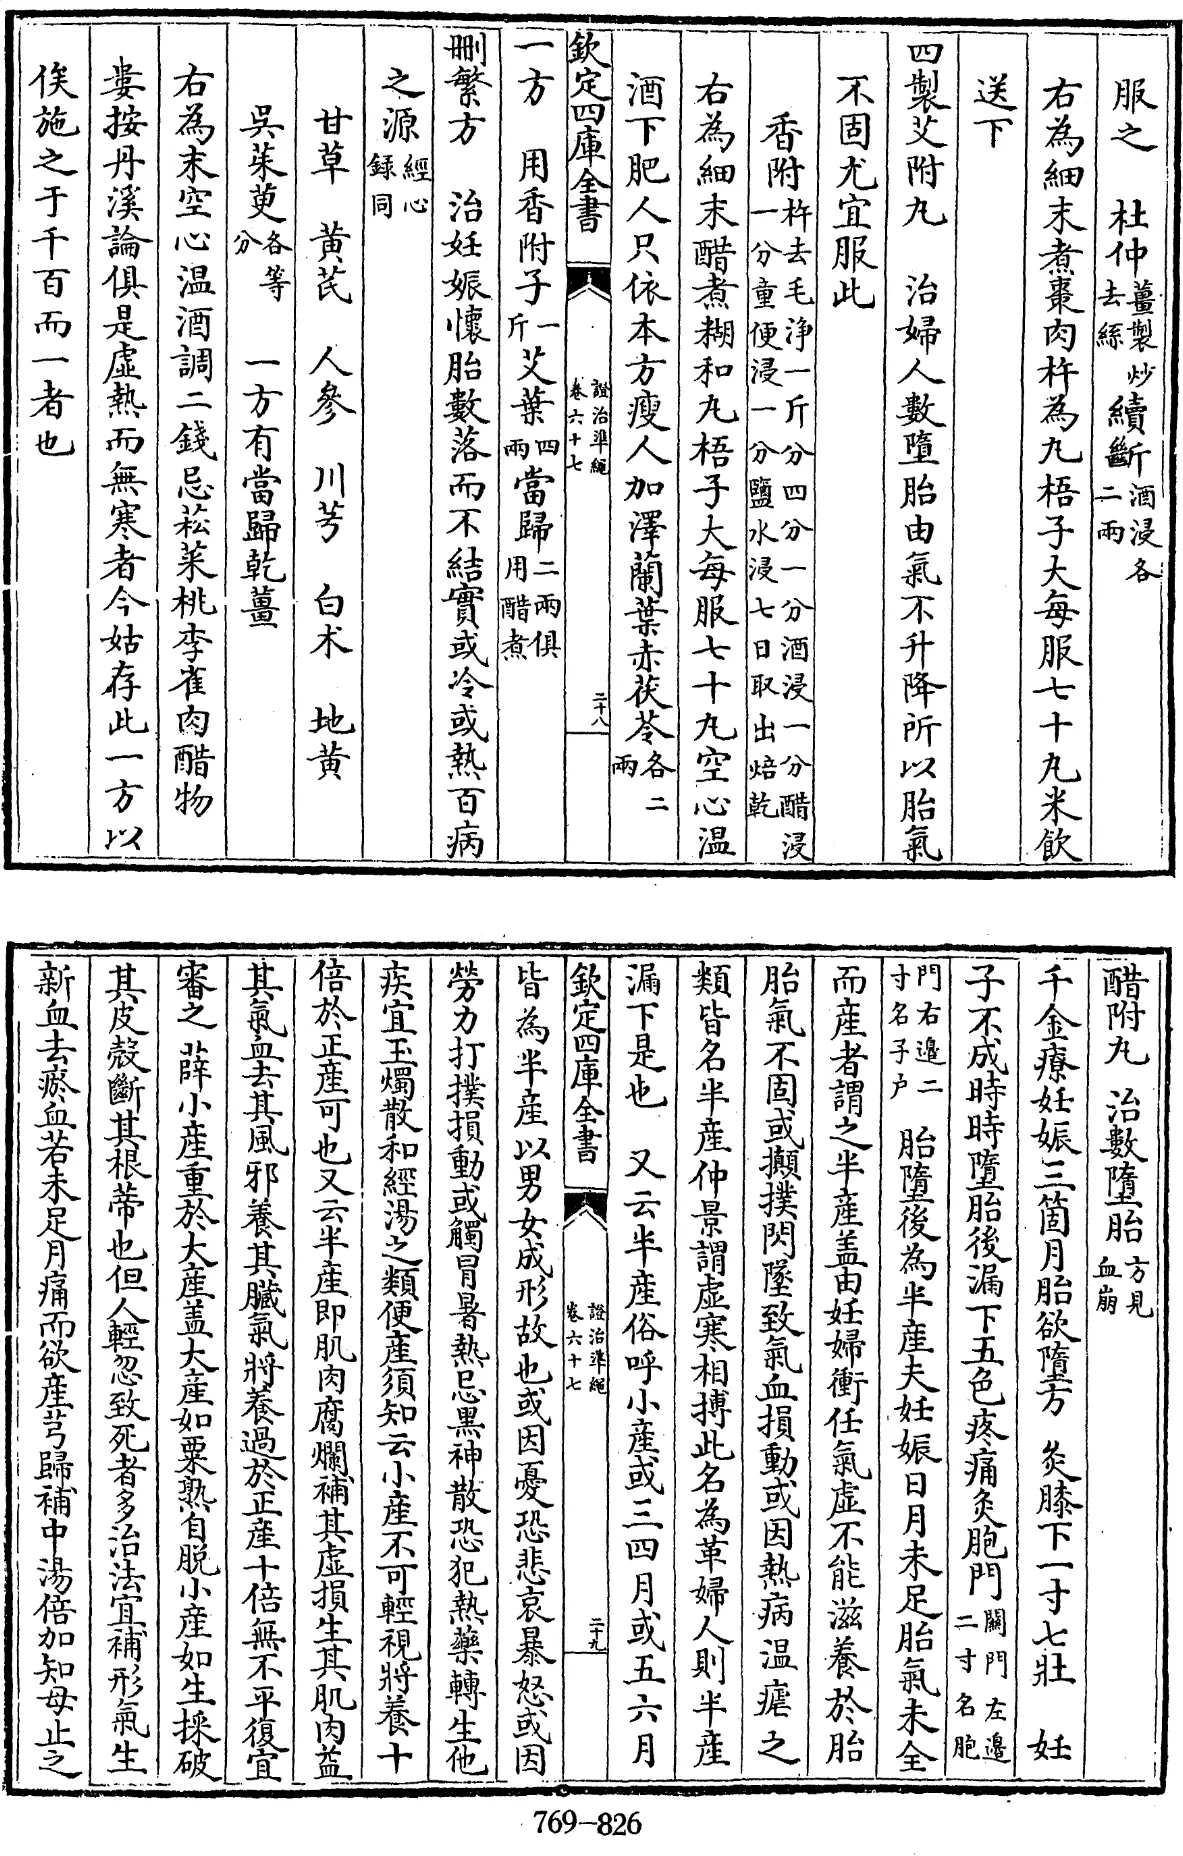 服之　杜仲薑製炒去絲續斷酒浸各二兩
右為細末煮棗肉杵為丸梧子大每服七十丸米飲
送下
四製艾附丸　治婦人數墮胎由氣不升降所以胎氣
不固尤宜服此
香附杵去毛淨一斤分四分一分酒浸一分醋浸一分童便浸一分鹽水浸七日取出焙乾
右為細末醋煮糊和丸梧子大每服七十丸空心温
酒下肥人只依本方瘦人加澤蘭葉赤茯苓各二兩
欽定四庫全書　證治準繩卷六十七　二十八
一方　用香附子一斤艾葉四兩當歸二兩俱用醋煮
刪繁方　治妊娠懷胎數落而不結實或冷或熱百病
之源經心録同
甘草　黄芪　人參　川芎　白术　地黄
吳茱萸各等分　一方有當歸乾薑
右為末空心温酒調二錢忌菘菜桃李雀肉醋物
婁按丹溪論俱是虛熱而無寒者今姑存此一方以
俟施之于千百而一者也
醋附丸　治數墮胎方見血崩
千金療妊娠三箇月胎欲墮方　灸膝下一寸七壯　妊
子不成時時墮胎後漏下五色疼痛灸胞門關門左邊二寸名胞
門右邊二寸名子户　胎墮後為半産夫妊娠日月未足胎氣未全
而産者謂之半産盖由妊婦衝任氣虛不能滋養於胎
胎氣不固或攧撲閃墜致氣血損動或因熱病温瘧之
類皆名半産仲景謂虛寒相搏此名為革婦人則半産
漏下是也　又云半産俗呼小産或三四月或五六月
欽定四庫全書　證治準繩卷六十七　二十九
皆為半産以男女成形故也或因憂恐悲哀暴怒或因
勞力打撲損動或觸冒暑熱忌黒神散恐犯熱藥轉生他
疾宜玉燭散和經湯之類便産須知云小産不可輕視將養十
倍於正産可也又云半産即肌肉腐爛補其虛損生其肌肉益
其氣血去其風邪養其臟氣將養過於正産十倍無不平復宜
審之　薛小産重於大産盖大産如栗熟自脱小産如生採破
其皮殻斷其根蒂也但人輕忽致死者多治法宜補形氣生
新血去瘀血若未足月痛而欲産芎歸補中湯倍加知母止之
769-826